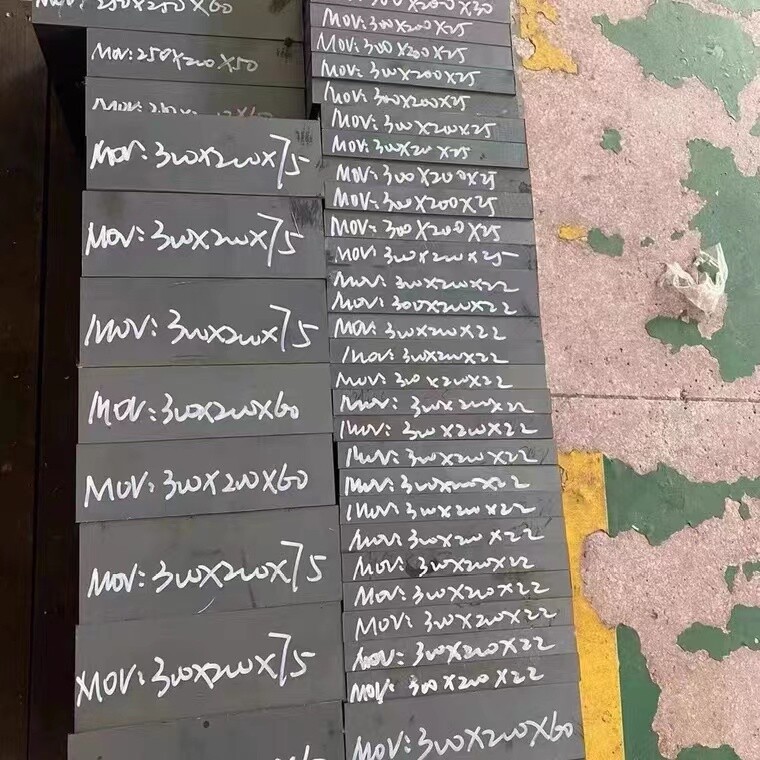 MOV: 250X250X60
MOV: 250X200X50
MOV: 300X200X75
MOV: 300X200X75
MOV: 300X200X75
MOV: 300X200X60
MOV: 300X200X60
MOV: 300X200X75
MOV: 300X200X75
300X200X30
MOV: 300X200X25
MOV: 300X200X25
MOV: 300X200X25
MOV: 300X200X25
MOV: 300X200X25
MOV: 300X200X25
MOV: 300X200X25
MOV: 300X200X25
MOV: 300X200X25
MOV: 300X200X25
MOV: 300X200X22
MOV: 300X200X22
MOV: 300X200X22
MOV: 300X200X22
MOV: 300X200X22
MOV: 300X200X22
MOV: 300X200X22
MOV: 300X200X22
MOV: 300X200X22
MOV: 300X200X22
MOV: 300X200X22
MOV: 300X200X22
MOV: 300X200X22
MOV: 300X200X22
MOV: 300X200X22
MOV: 300X200X22
MOV: 300X200X60